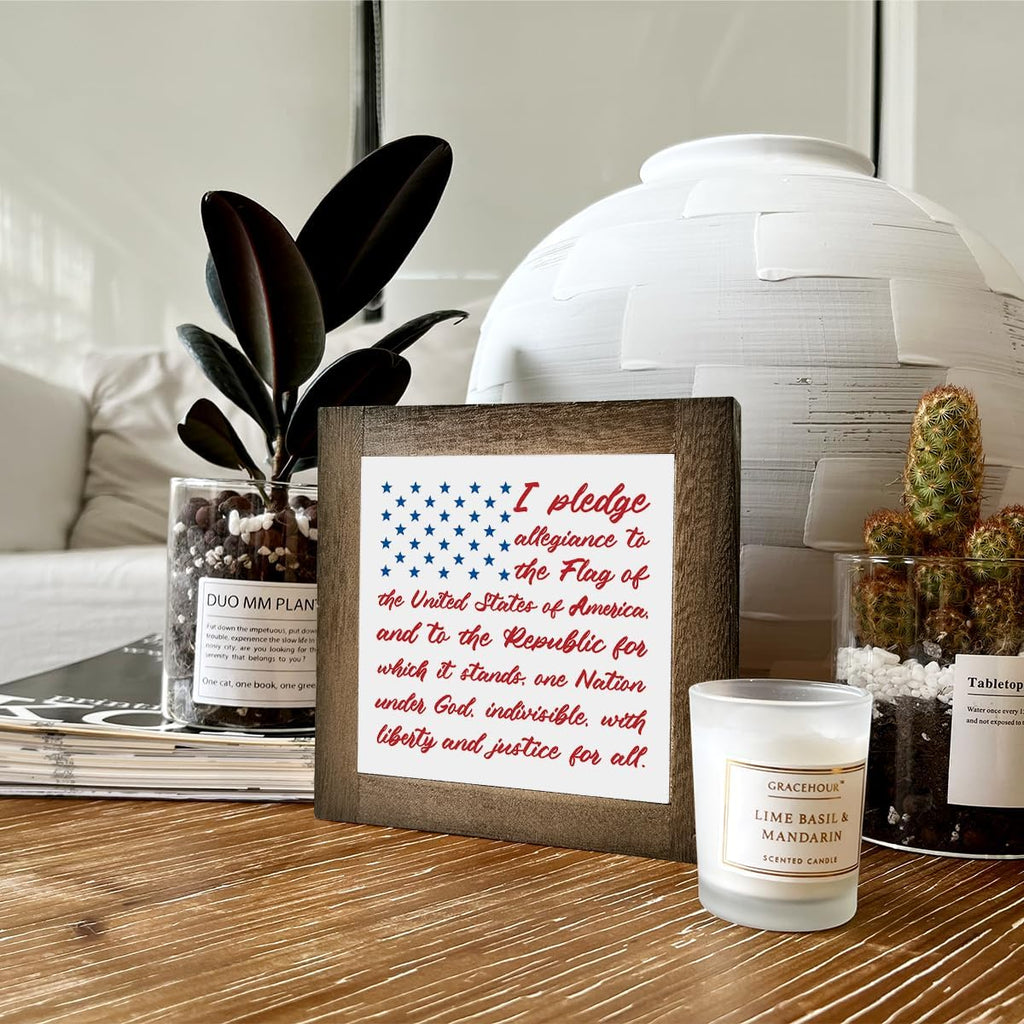 I pledge
allegiance to
the Flag of
the United States of America,
and to the Republic for
which it stands, one Nation
under God, indivisible, with
liberty and justice for all.
DUO MM PLAN
Put down the impetuous, put down
trouble, experience the slow life in
noisy city, are you looking for th
serenity that belongs to you?
One cat, one book, one gree
GRACEHOUR™
LIME BASIL &
MANDARIN
SCENTED CANDLE
Tabletop
Water once every 1
and not exposed to